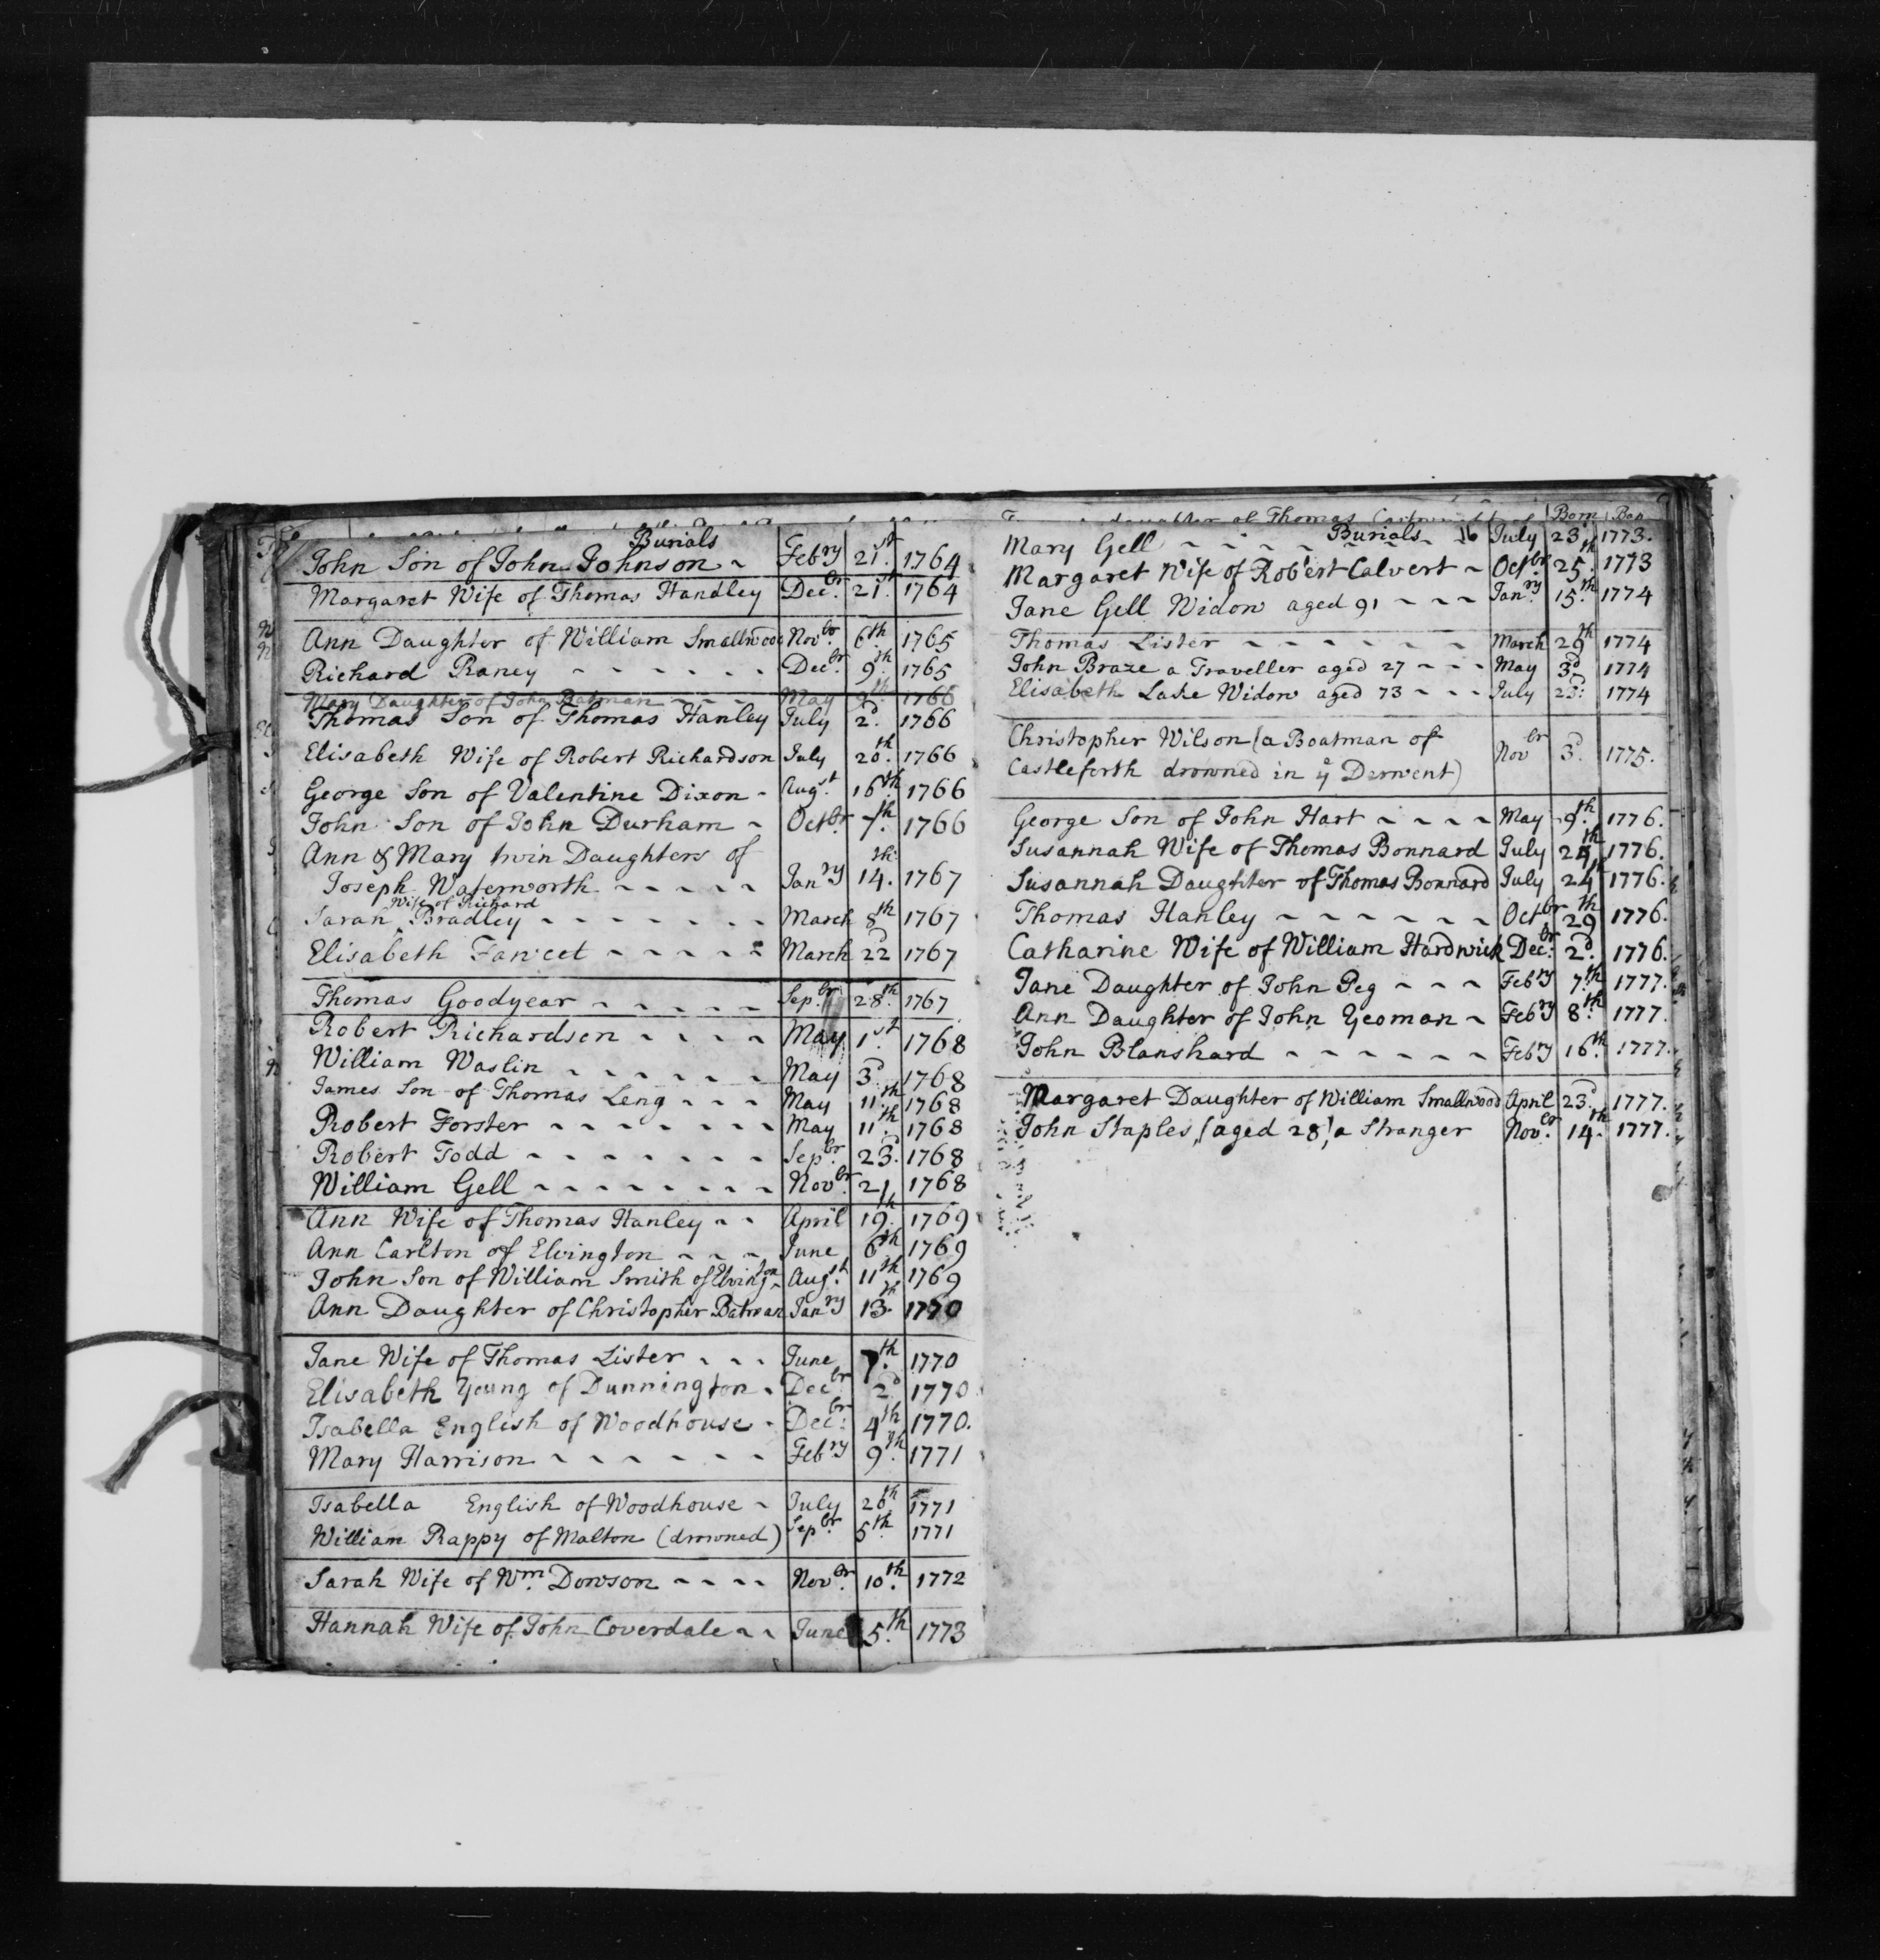 Burials
John Son of John Johnson ~ Feb.ry 21.st 1764
Margaret Wife of Thomas Handley Dec.br 21.st 1764
Ann Daughter of William Smallwood Nov.br 6.th 1765
Richard Raney ~ ~ ~ ~ ~ ~ Dec.br 9.th 1765
Mary Daughter of John Batman ~ ~ ~ May 9.th 1766
Thomas Son of Thomas Hanley July 2.d 1766
Elisabeth Wife of Robert Richardson July 20.th 1766
George Son of Valentine Dixon ~ Aug.st 16.th 1766
John Son of John Durham ~ Oct.br 7.th 1766
Ann & Mary twin Daughters of
Joseph Waterworth ~ ~ ~ ~ ~ Jan.ry 14.th 1767
Wife of Richard
Sarah ^ Bradley ~ ~ ~ ~ ~ ~ ~ March 8.th 1767
Elisabeth Fawcet ~ ~ ~ ~ ~ March 22.d 1767
Thomas Goodyear ~ ~ ~ ~ ~ Sep.br 28.th 1767
Robert Richardson ~ ~ ~ ~ May 1.st 1768
William Waslin ~ ~ ~ ~ ~ ~ May 3.d 1768
James Son of Thomas Leng ~ ~ ~ May 11.th 1768
Robert Forster ~ ~ ~ ~ ~ ~ ~ May 11.th 1768
Robert Todd ~ ~ ~ ~ ~ ~ ~ Sep.br 23.d 1768
William Gell ~ ~ ~ ~ ~ ~ ~ ~ Nov.br 21 1768
Ann Wife of Thomas Hanley ~ ~ April 19.th 1769
Ann Carlton of Elvington ~ ~ ~ June 6.th 1769
John Son of William Smith of Elvington ~ Aug.st 11.th 1769
Ann Daughter of Christopher Batman Jan.ry 13.th 1770
Jane Wife of Thomas Lister ~ ~ ~ June 7.th 1770
Elisabeth Young of Dunnington ~ Dec.br 2.d 1770
Isabella English of Woodhouse ~ Dec.br 4.th 1770.
Mary Harrison ~ ~ ~ ~ ~ ~ Feb.ry 9.th 1771
Isabella English of Woodhouse ~ July 26.th 1771
William Rappy of Malton (drowned) Sep.br 5.th 1771
Sarah Wife of Wm. Dowson ~ ~ ~ ~ Nov.br 10.th 1772
Hannah Wife of John Coverdale ~ ~ June 5.th 1773
daughter of Thomas Born Bap
Burials
Mary Gell ~ ~ ~ ~ ~ ~ ~ July 23 1773.
Margaret Wife of Robert Calvert ~ Oct.br 25.th 1773
Jane Gell Widow aged 91 ~ ~ ~ Jan.ry 15.th 1774
Thomas Lister ~ ~ ~ ~ ~ ~ March 29.th 1774
John Braze a Traveller aged 27 ~ ~ ~ May 3.d 1774
Elisabeth Lake Widow aged 73 ~ ~ ~ July 23.d 1774
Christopher Wilson (a Boatman of
Castleforth drowned in ye Derwent) Nov.br 3.d 1775.
George Son of John Hart ~ ~ ~ ~ May 9.th 1776.
Susannah Wife of Thomas Bonnard July 24.th 1776.
Susannah Daughter of Thomas Bonnard July 24.th 1776.
Thomas Hanley ~ ~ ~ ~ ~ ~ Oct.br 29.th 1776.
Catharine Wife of William Hardwick Dec.br 2.d 1776.
Jane Daughter of John Peg ~ ~ ~ Feb.ry 7.th 1777.
Ann Daughter of John Yeoman ~ Feb.ry 8.th 1777.
John Blanshard ~ ~ ~ ~ ~ ~ Feb.ry 16.th 1777.
Margaret Daughter of William Smallwood April 23.d 1777.
John Staples, (aged 28,) a Stranger Nov.br 14.th 1777.